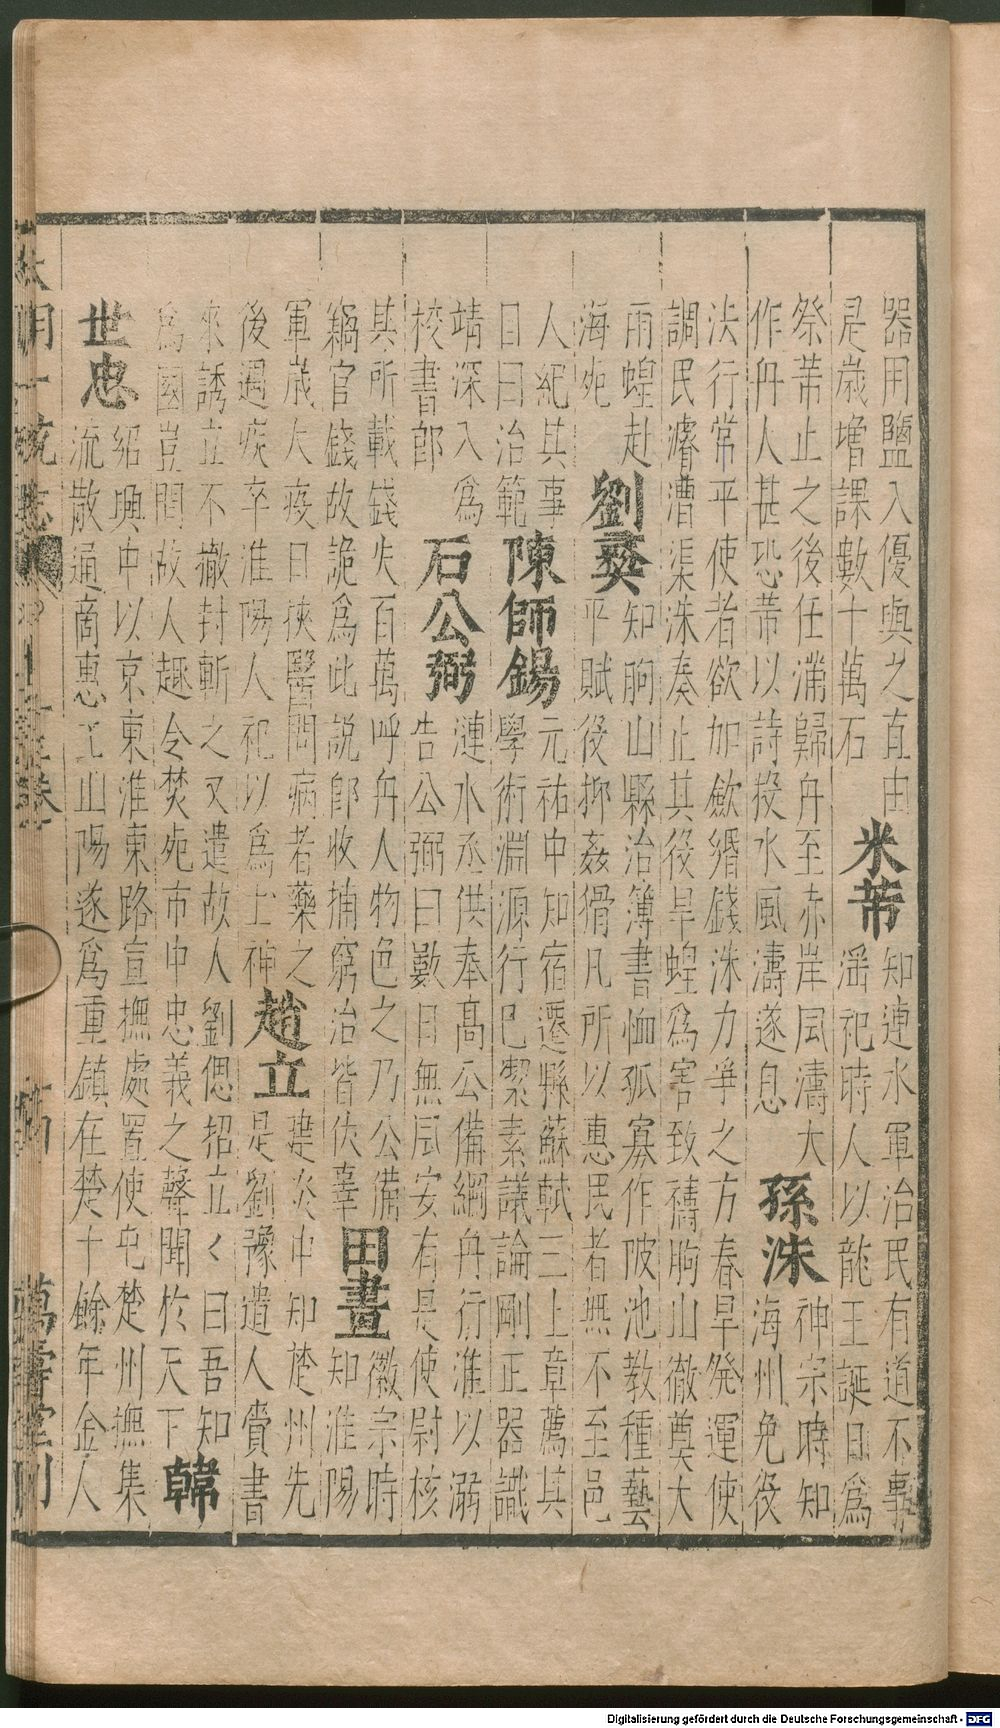 器用鹽入優與之直由
是歲增課數十萬石
米芾
知連水軍治民有道不事
滛祀時人以龍王誕日爲
祭芾止之後任滿歸舟至赤岸風濤大
作舟人甚恐芾以詩投水風濤遂息
孫洙
神宗時知
海州免役
法行常平使者欲加歛緡錢洙力爭之方春旱發運使
調民濬漕渠洙奏止其役旱蝗爲害致禱朐山徹奠大
雨蝗赴
海死
劉彛
知朐山縣治簿書恤孤寡作陂池教種藝
平賦役抑姦猾凡所以惠民者無不至邑
人紀其事
目曰治範
陳師錫
元祐中知宿遷縣蘇軾三上章薦其
學術淵源行已潔素議論剛正器識
靖深入爲
校書郎
石公弼
漣水丞供奉高公備綱舟行淮以溺
告公弼曰數日無風安有是使尉核
其所載錢失百萬呼舟人物色之乃公備
竊官錢故詭爲此說即收捕窮治皆伏辜
田晝
徽宗時
知淮陽
軍歲大疫日挾醫問病者藥之
後遇疾卒淮陽人祀以爲土神
趙立
建炎中知楚州先
是劉豫遣人賫書
來誘立不撤封斬之又遣故人劉偲招立く曰吾知
爲國豈問故人趣令焚死市中忠義之聲聞於天下
韓
世忠
紹興中以京東淮東路宣撫處置使屯楚州撫集
流散通商惠工山陽遂爲重鎮在楚十餘年金人
大明一統志
萬壽堂刊
Digitalisierung gefördert durch die Deutsche Forschungsgemeinschaft - DFG